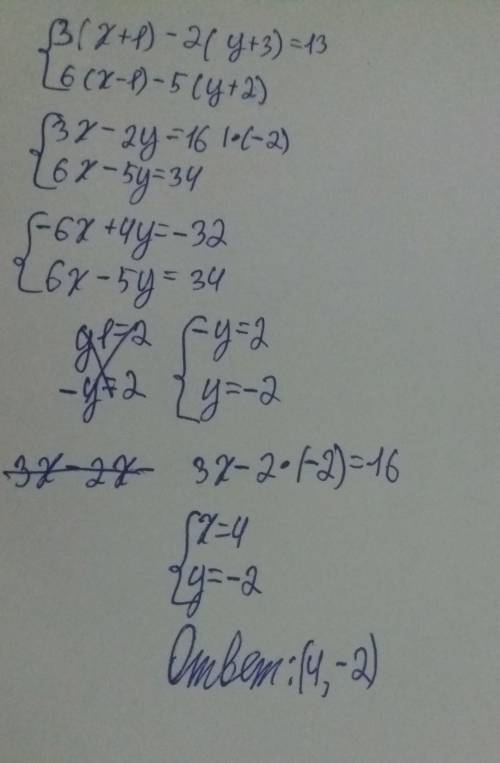 3(x+1)-2(y+3)=13
6(x-1)-5(y+2)
3x-2y=16 |•(-2)
6x-5y=34
-6x+4y=-32
6x-5y=34
y1=2 -y=2
-y=2 y=-2
3x-2x 3x-2•(-2)=16
x=4
y=-2
Ответ:(4,-2)